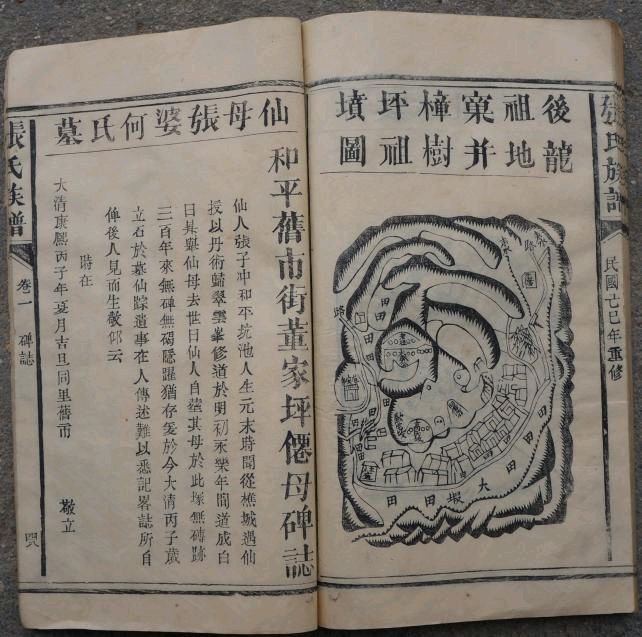 張氏族譜
民國乙巳年重修
後龍
祖地
窠并
樟樹
坪祖
墳圖
路
路
田
田
田
田
田
田
田
大塅田
田
和平舊市街董家坪僊母碑誌
仙母張婆何氏墓
仙人張子冲和平坑池人生元末時聞從樵城遇仙
授以丹術歸翠雲峯修道於明初永樂年間道成白
日其舉仙母去世日仙人自𦵏其母於此塚無磚跡
三百年來無碑無碣隱躍猶存爰於今大清丙子歲
立石於墓仙踪遺事在人傳述難以悉記畧誌所自
俾後人見而生敬仰云
時在
大清康熙丙子年夏月吉旦同里舊市
敬立
張氏族譜
卷一
碑誌